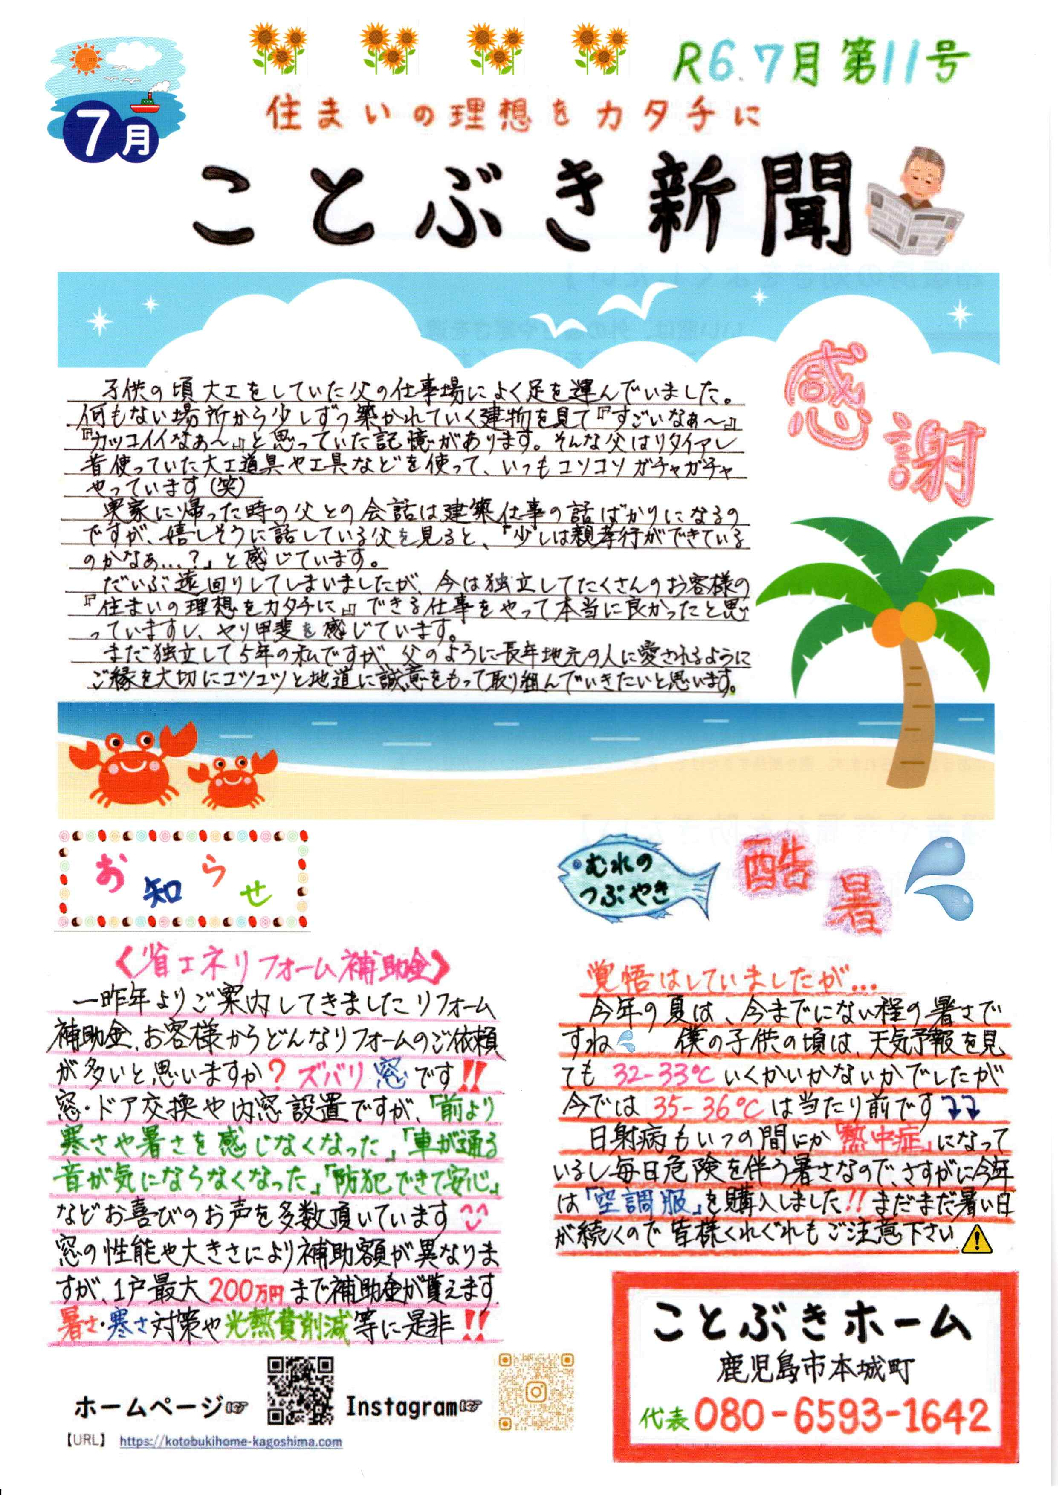 R6.7月第11号
7月
住まいの理想をカタチに
ことぶき新聞
感謝
子供の頃大工をしていた父の仕事場によく足を運んでいました。
何もない場所から少しずつ築かれていく建物を見て『すごいなぁ〜』
『カッコイイなぁ〜』と思っていた記憶があります。そんな父はリタイアし
昔使っていた大工道具や工具などを使って、いつもコソコソガチャガチャ
やっています(笑)
実家に帰った時の父との会話は建築仕事の話ばかりになるの
ですが、嬉しそうに話している父を見ると、「少しは親孝行ができている
のかなぁ...?」と感じています。
だいぶ遠回りしてしまいましたが、今は独立してたくさんのお客様の
『住まいの理想をカタチに』できる仕事をやって本当に良かったと思
っていますし、ヤリ甲斐を感じています。
まだ独立して5年の私ですが、父のように長年地元の人に愛されるように
ご縁を大切にコツコツと地道に誠意をもって取り組んでいきたいと思います。
お知らせ
〈省エネリフォーム補助金〉
一昨年よりご案内してきましたリフォーム
補助金、お客様からどんなリフォームのご依頼
が多いと思いますか?ズバリ窓です!!
窓・ドア交換や内窓設置ですが、「前より
寒さや暑さを感じなくなった」「車が通る
音が気にならなくなった」「防犯できて安心」
などお喜びのお声を多数頂いています
窓の性能や大きさにより補助額が異なりま
すが、1戸最大200万円まで補助金が貰えます
暑さ・寒さ対策や光熱費削減等に是非!!
ホームページ☞
Instagram☞
【URL】 https://kotobukihome-kagoshima.com
むれの
つぶやき
酷暑
覚悟はしていましたが...
今年の夏は、今までにない程の暑さで
すね 僕の子供の頃は、天気予報を見
ても 32-33℃ いくかいかないかでしたが
今では 35-36℃ は当たり前です
日射病もいつの間にか「熱中症」になって
いるし毎日危険を伴う暑さなので、さすがに今年
は「空調服」を購入しました!!まだまだ暑い日
が続くので皆様くれぐれもご注意下さい
ことぶきホーム
鹿児島市本城町
代表080-6593-1642